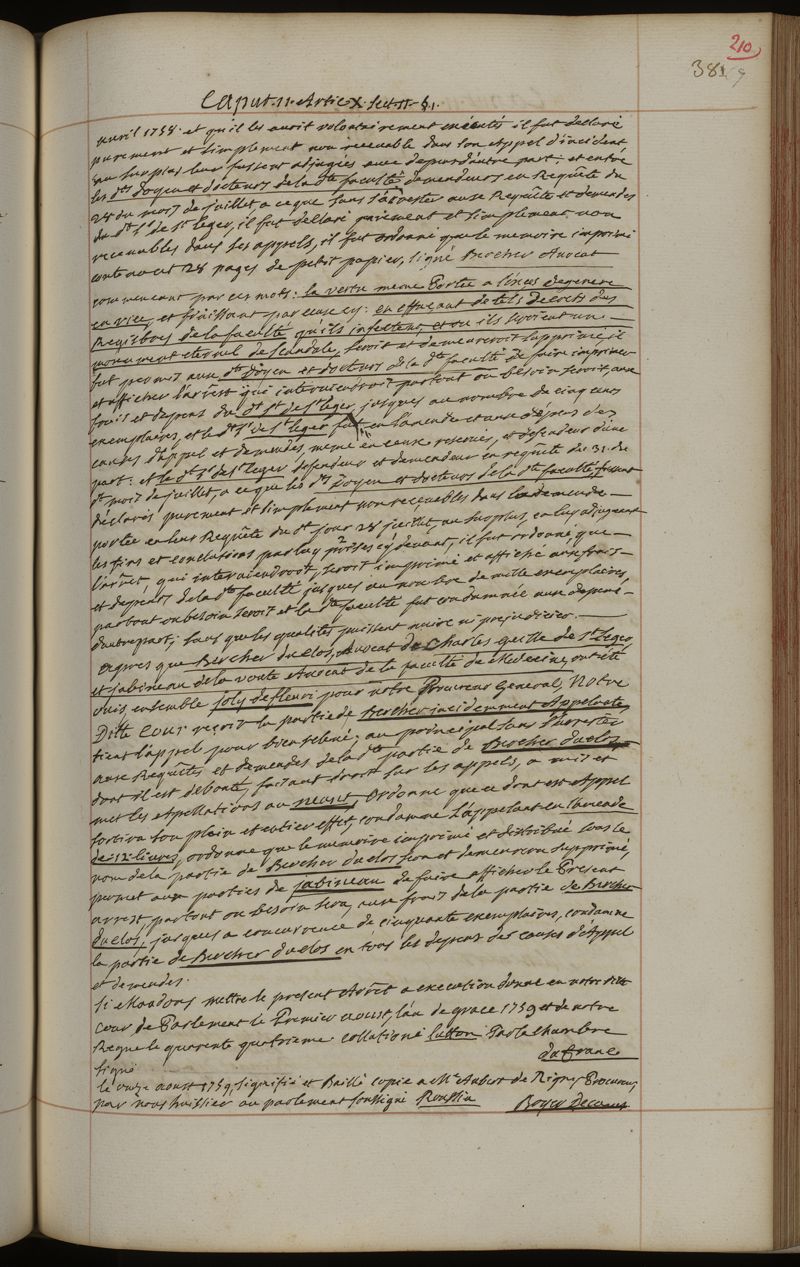 210
381
Caput. 11. Artic X. Sect. 11. §1.
avril 1758. et qu'il les auroit volontairement executés il fut declaré
purement et simplement non recevable dans son appel d'incident,
au surplus leur fussent adjugées avec depens d'autre part; et entre
les d.ts Doyen et docteurs de la d.te faculté demandeurs en Requête du
28 du mois de juillet, a ce que sans s'arrester aux Requête et demandes
du d.t S.r de S.t leger, il fut declaré purement et simplement non
recevables dans ses appels, il fut ordonné que le memoire imprimé
contenant 28 pages de petit papier, signé Bercher Avocat
commencant par ces mots: la vertu meme portée a l'exces degenere
en vice, et finissant par ceux cy: en effaçant de tels decrets des
Registres de la faculté qu'ils infectent, et ou ils seroient un
monument eternel de scandale, seroit et demeureroit supprimé, il
fut permis aux d.ts Doyen et docteurs de la d.te faculté de faire imprimer
et afficher l'arrest qui interviendroit partout ou besoin seroit aux
frais et depens du d.t S.r de S.t leger, jusques au nombre de cinq cens
exemplaires, et le d.t S.r de S.t leger fut en l'amende et aux dépens des
causes d'appel et demandes, meme en ceux reservés, et defendeur d'une
part: et le d.t S.r de S.t leger defendeur et demandeur en requête du 31. du
d.t mois de juillet, a ce que les d.ts Doyen et docteurs de la d.te faculté, fussent
déclarés purement et simplement non recevables dans la demande
portée en leur Requête du d.t jour 28 juillet, au surplus, en luy adjugeant
les fins et conclusions par luy prises cy devant, il fut ordonné, que
l'arrêt, qui interviendroit, seroit imprimé et affiché aux frais
et depens de la d.te faculté jusques au nombre de mille exemplaires,
partout ou besoin seroit et la d.te faculté fut condamnée aux depens
d'autre part; sans que les qualités puissent nuire ni prejudicier.
Apres que Bercher duclos, Avocat de Charles Guille de S.t Leger,
et Jabineau de la voute Avocat de la faculté de Medecine, ont été
ouis ensemble Joly de fleuri pour notre Procureur General, Notre
Ditte Cour reçoit la partie de Bercher incidemment Appelante,
tient l'appel pour bien relevé; au principal sans s'arrester
aux Requêtes et demandes de la d.te partie de Bercher duclos
dont il est debouté, faisant droit sur les appels, a mis et
met les Appellations au neant, Ordonne que ce dont est Appel
sortira son plein et entier effet, condamne L'appelant en l'amende
de 12 livres, ordonne que le memoire imprimé et distribué sous le
nom de la partie de Bercher duclos sera et demeurera supprimé,
permet aux parties de Jabineau de faire afficher le Present
arrest partout ou besoin sera, aux frais de la partie de Bercher
duclos, jusques a concurrence de cinquante exemplaires, condamne
la partie de Bercher duclos en tous les depens des causes d'Appel
et demandes.
Si Mandons mettre le present Arrêt a execution donné en notre ditte
Cour de Parlement le Premier aoust, l'an de grace 1759 et de notre
Regne le quarente quatrieme collationé Lutton Par la chambre
signé dufranc
le onze aoust 1759, signifié et Baillé copie a M.e Aubert de Rigny Procureur
par nous huissier au parlement soussigné Roussin
Boyer